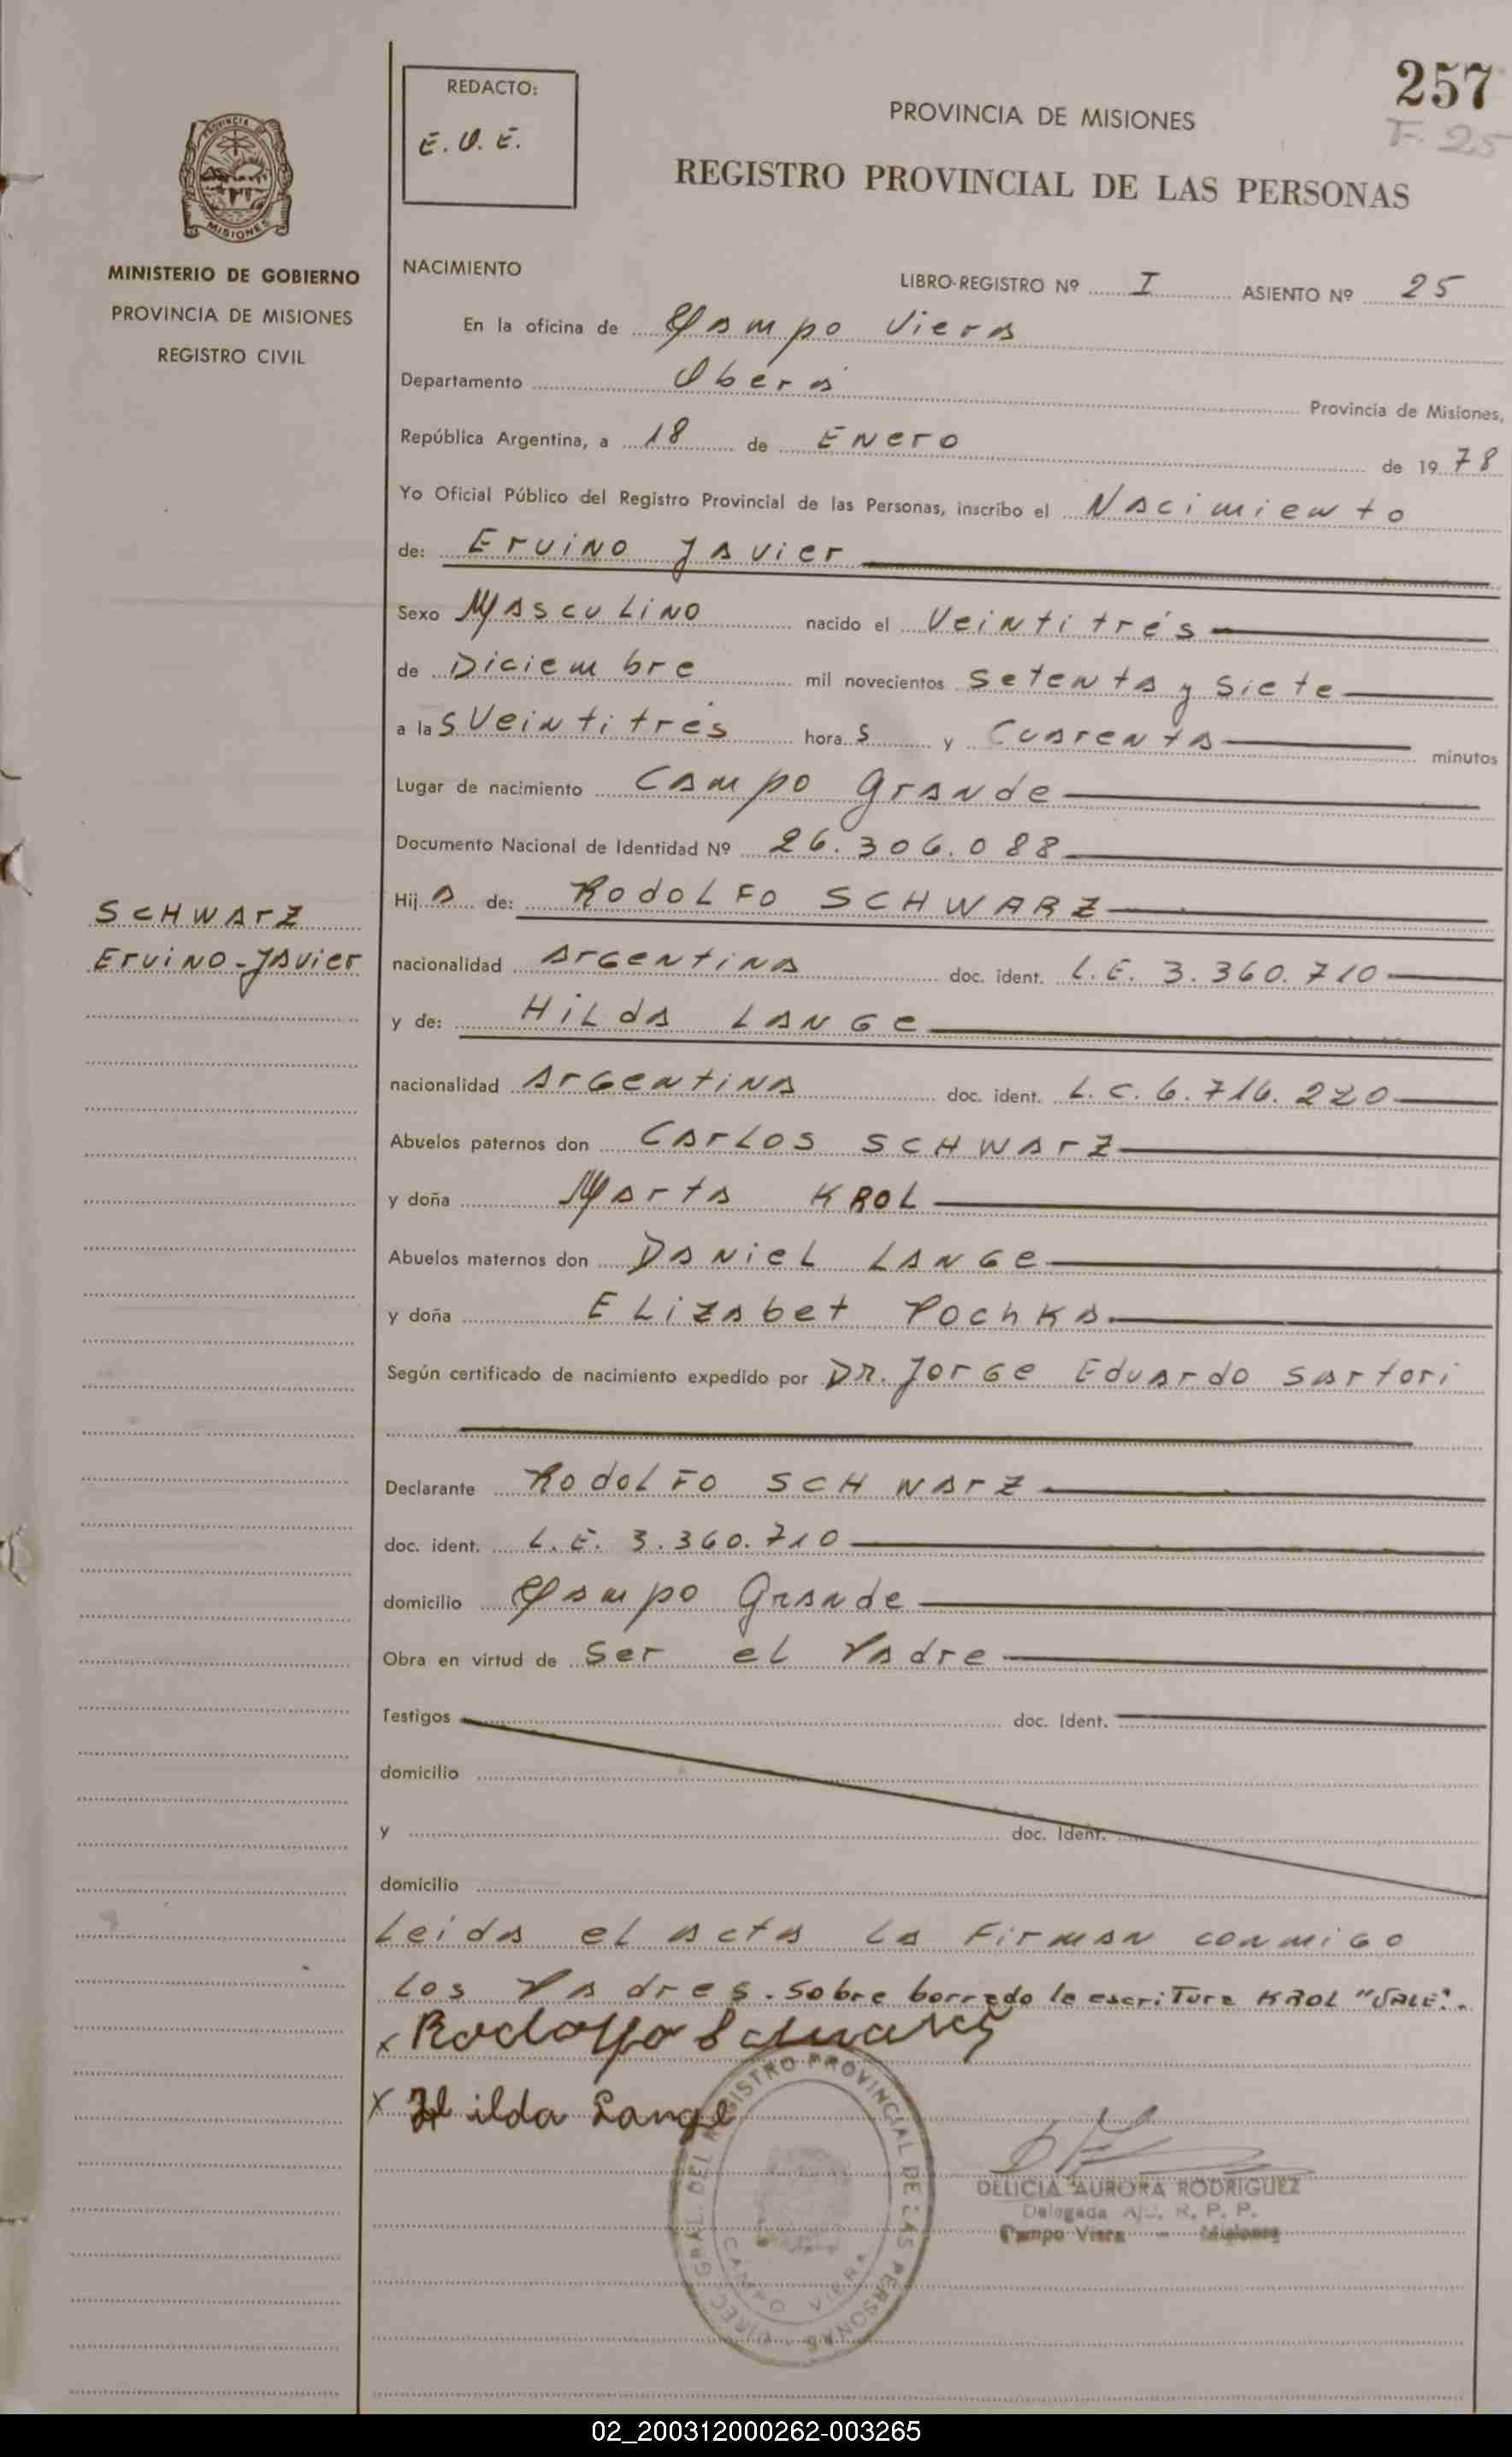 257
F. 25
REDACTO:
E. O. E.
PROVINCIA DE MISIONES
REGISTRO PROVINCIAL DE LAS PERSONAS
PROVINCIA DE
MISIONES
MINISTERIO DE GOBIERNO
PROVINCIA DE MISIONES
REGISTRO CIVIL
NACIMIENTO
LIBRO-REGISTRO Nº I ASIENTO Nº 25
En la oficina de Campo Viera
Departamento Oberá Provincia de Misiones,
República Argentina, a 18 de Enero de 1978
Yo Oficial Público del Registro Provincial de las Personas, inscribo el Nacimiento
de: Ervino Javier
Sexo Masculino nacido el Veintitrés
de Diciembre mil novecientos setenta y siete
a las Veintitrés horas y Cuarenta minutos
Lugar de nacimiento Campo Grande
Documento Nacional de Identidad Nº 26.306.088
SCHWArZ
Ervino-Javier
Hijo de: RodoLFO SCHWARZ
nacionalidad Argentina doc. ident. L.E. 3.360.710
y de: HiLda LANGe
nacionalidad Argentina doc. ident. L.C. 6.716.220
Abuelos paternos don CarLos SCHWArZ
y doña Marta KROL
Abuelos maternos don DaNieL LANGe
y doña ELizabet Pochka
Según certificado de nacimiento expedido por DR. Jorge Eduardo Sartori
Declarante RodoLFO SCHWArZ
doc. ident. L.E. 3.360.710
domicilio Campo Grande
Obra en virtud de Ser el Padre
Testigos doc. Ident.
domicilio
y doc. Ident.
domicilio
Leida el acta la Firman conmigo
los Padres. Sobre borrado le escriTura KROL "VALE".
x Rodolfo Schwarz
x Hilda Lange
DIREC. GRAL. DEL REGISTRO PROVINCIAL DE LAS PERSONAS
CAMPO VIERA
DELICIA AURORA RODRIGUEZ
Delegada R. P. P.
Campo Viera - Misiones
02_200312000262-003265